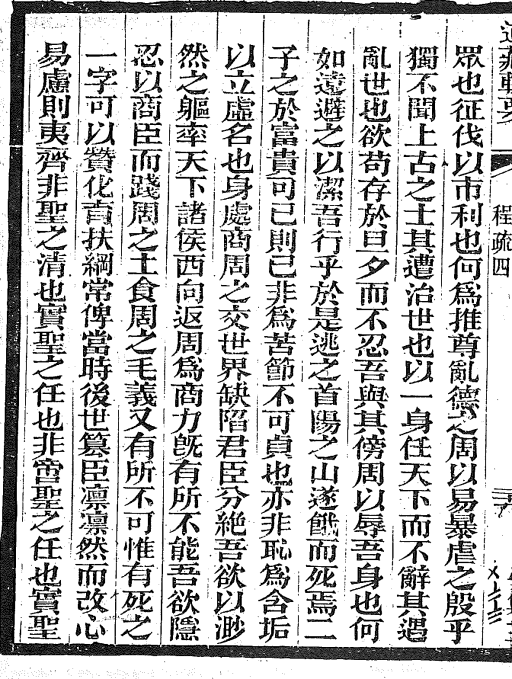 道藏輯要
程疏四
眾也征伐以市利也何爲推尊亂德之周以易暴虐之殷乎
獨不聞上古之士其遭治世也以一身任天下而不辭其遇
亂世也欲苟存於旦夕而不忍吾與其傍周以辱吾身也何
如遠避之以潔吾行乎於是逃之首陽之山遂餓而死焉二
子之於富貴可已則已非爲苦節不可貞也亦非恥爲含垢
以立虛名也身處商周之交世界缺陷君臣分絕吾欲以渺
然之軀率天下諸侯西向返周爲商力旣有所不能吾欲隱
忍以商臣而踐周之土食周之毛義又有所不可惟有死之
一字可以贊化育扶綱常俾當時後世篡臣凛凛然而改心
易慮則夷齊非聖之清也實聖之任也非啻聖之任也實聖